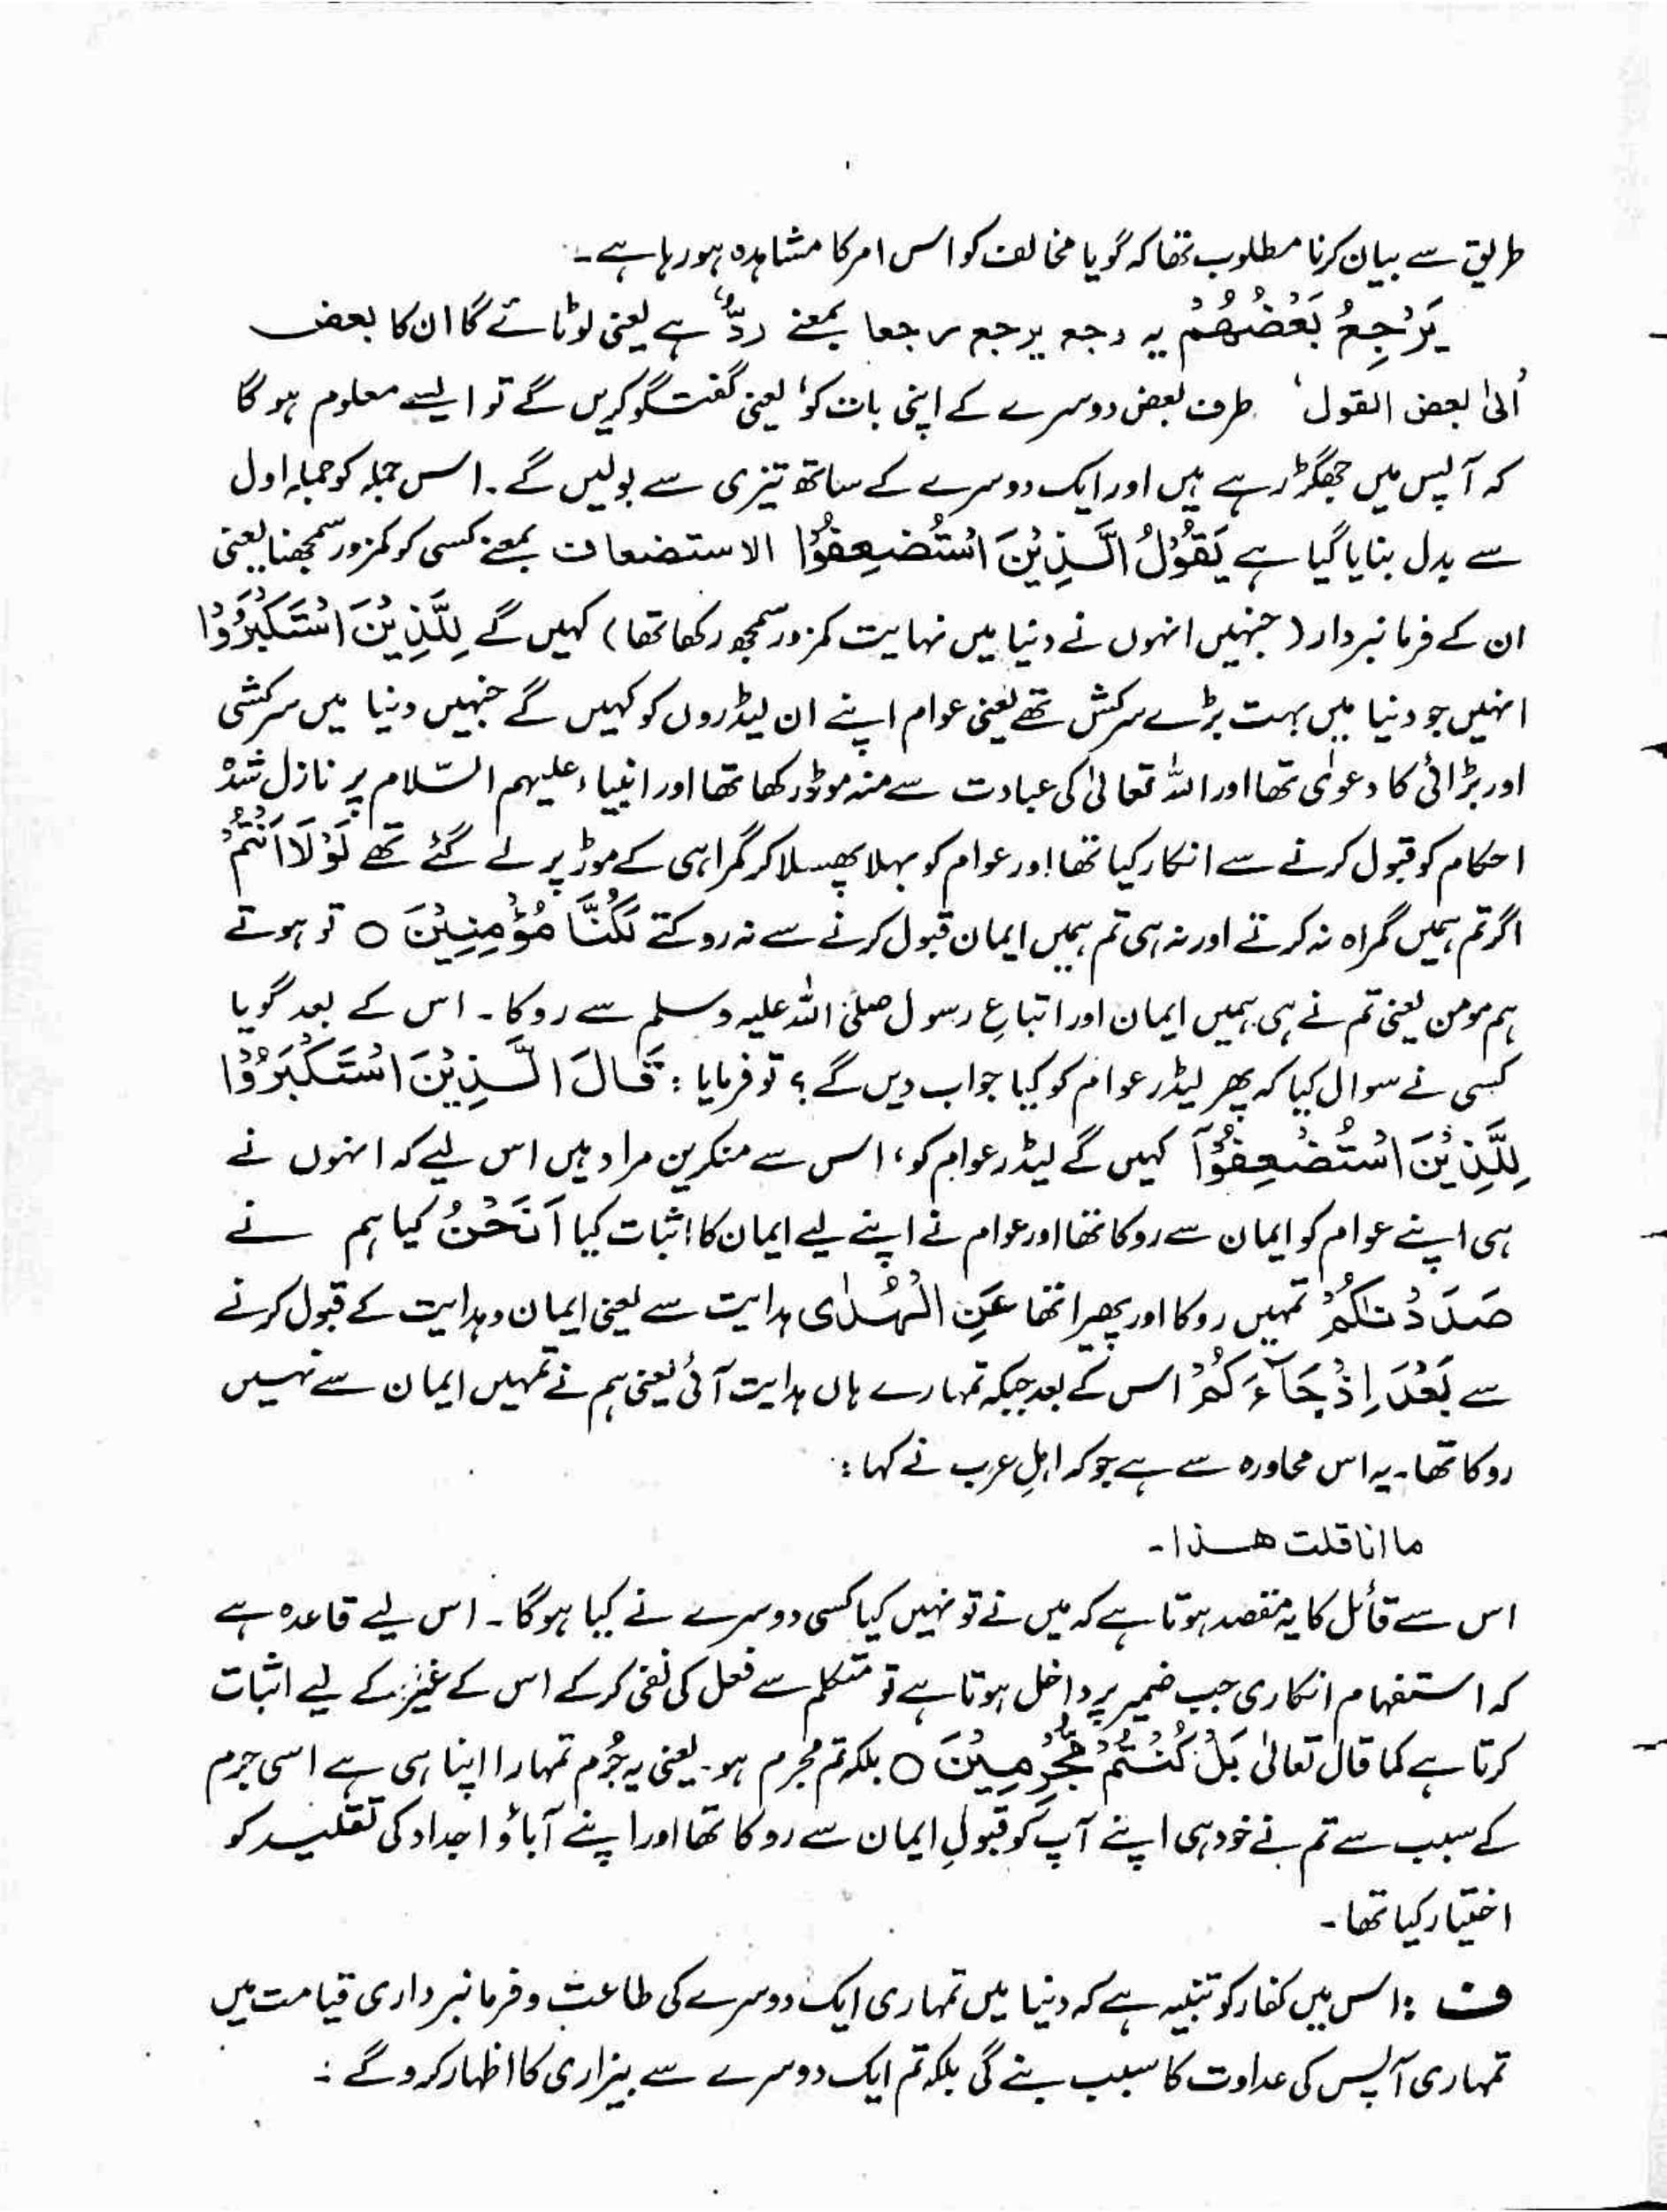 طریق سے بیان کرنا مطلوب تھا کہ گویا مخالف کو اس امر کا مشاہدہ ہو رہا ہے۔
یَرْجِعُ بَعْضُھُمْ یہ رجع یرجع رجعا بمعنے ردّ ہے یعنی لوٹائے گا ان کا بعض
اُلیٰ بعض القول، طرف بعض دوسرے کے اپنی بات کو، یعنی گفتگو کریں گے تو ایسے معلوم ہو گا
کہ آپس میں جھگڑ رہے ہیں اور ایک دوسرے کے ساتھ تیزی سے بولیں گے۔ اس جملہ کو جملہ اول
سے بدل بنایا گیا ہے یَقُوْلُ الَّذِیْنَ اسْتُضْعِفُوْا الاستضعاف بمعنے کسی کو کمزور سمجھنا یعنی
ان کے فرمانبردار (جنہیں انہوں نے دنیا میں نہایت کمزور سمجھ رکھا تھا) کہیں گے لِلَّذِیْنَ اسْتَکْبَرُوْا
انہیں جو دنیا میں بہت بڑے سرکش تھے یعنی عوام اپنے ان لیڈروں کو کہیں گے جنہیں دنیا میں سرکشی
اور بڑائی کا دعوٰی تھا اور اللہ تعالیٰ کی عبادت سے منہ موڑ رکھا تھا اور انبیاء علیہم السّلام پر نازل شدہ
احکام کو قبول کرنے سے انکار کیا تھا اور عوام کو بہلا پھسلا کر گمراہی کے موڑ پر لے گئے تھے لَوْلَا اَنْتُمْ
اگر تم ہمیں گمراہ نہ کرتے اور نہ ہی تم ہمیں ایمان قبول کرنے سے نہ روکتے لَکُنَّا مُؤْمِنِیْنَ ○ تو ہوتے
ہم مومن یعنی تم نے ہی ہمیں ایمان اور اتباعِ رسول صلی اللہ علیہ وسلم سے روکا۔ اس کے بعد گویا
کسی نے سوال کیا کہ پھر لیڈر عوام کو کیا جواب دیں گے؟ تو فرمایا: قَالَ الَّذِیْنَ اسْتَکْبَرُوْا
لِلَّذِیْنَ اسْتُضْعِفُوْآ کہیں گے لیڈر عوام کو، اس سے منکرین مراد ہیں اس لیے کہ انہوں نے
ہی اپنے عوام کو ایمان سے روکا تھا اور عوام نے اپنے لیے ایمان کا اثبات کیا اَنَحْنُ کیا ہم نے
صَدَدْنٰکُمْ تمہیں روکا اور پھیرا تھا عَنِ الْھُدٰی ہدایت سے یعنی ایمان و ہدایت کے قبول کرنے
سے بَعْدَ اِذْ جَآءَکُمْ اس کے بعد جبکہ تمہارے ہاں ہدایت آئی یعنی ہم نے تمہیں ایمان سے نہیں
روکا تھا۔ یہ اس محاورہ سے ہے جو کہ اہلِ عرب نے کہا:
ما انا قلت ھذا۔
اس سے قائل کا یہ مقصد ہوتا ہے کہ میں نے تو نہیں کیا کسی دوسرے نے کیا ہو گا۔ اس لیے قاعدہ ہے
کہ استفہام انکاری جب ضمیر پر داخل ہوتا ہے تو متکلم سے فعل کی نفی کر کے اس کے غیر کے لیے اثبات
کرتا ہے کما قال تعالیٰ بَلْ کُنْتُمْ مُّجْرِمِیْنَ ○ بلکہ تم مجرم ہو۔ یعنی یہ جُرم تمہارا اپنا ہی ہے اسی جرم
کے سبب سے تم نے خود ہی اپنے آپ کو قبولِ ایمان سے روکا تھا اور اپنے آباؤ اجداد کی تقلید کو
اختیار کیا تھا۔
ف: اس میں کفار کو تنبیہ ہے کہ دنیا میں تمہاری ایک دوسرے کی طاعت و فرمانبرداری قیامت میں
تمہاری آپس کی عداوت کا سبب بنے گی بلکہ تم ایک دوسرے سے بیزاری کا اظہار کرو گے: